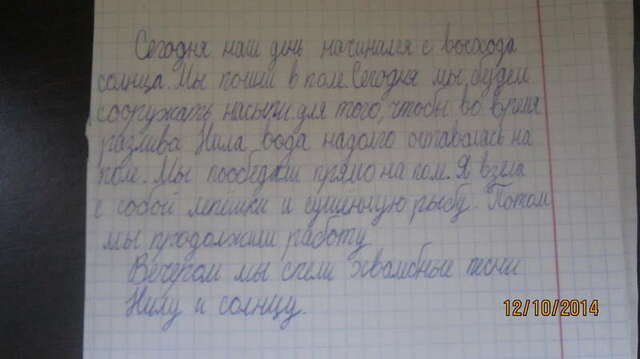 Сегодня наш день начинался с восхода
солнца. Мы пошли в поле. Сегодня мы будем
сооружать насыпи для того, чтобы во время
разлива Нила вода надолго оставалась на
поле. Мы пообедали прямо на поле. Я взяла
с собой лепёшки и сушёную рыбу. Потом
мы продолжили работу
Вечером мы спели хвалебные песни
Нилу и солнцу.
12/10/2014